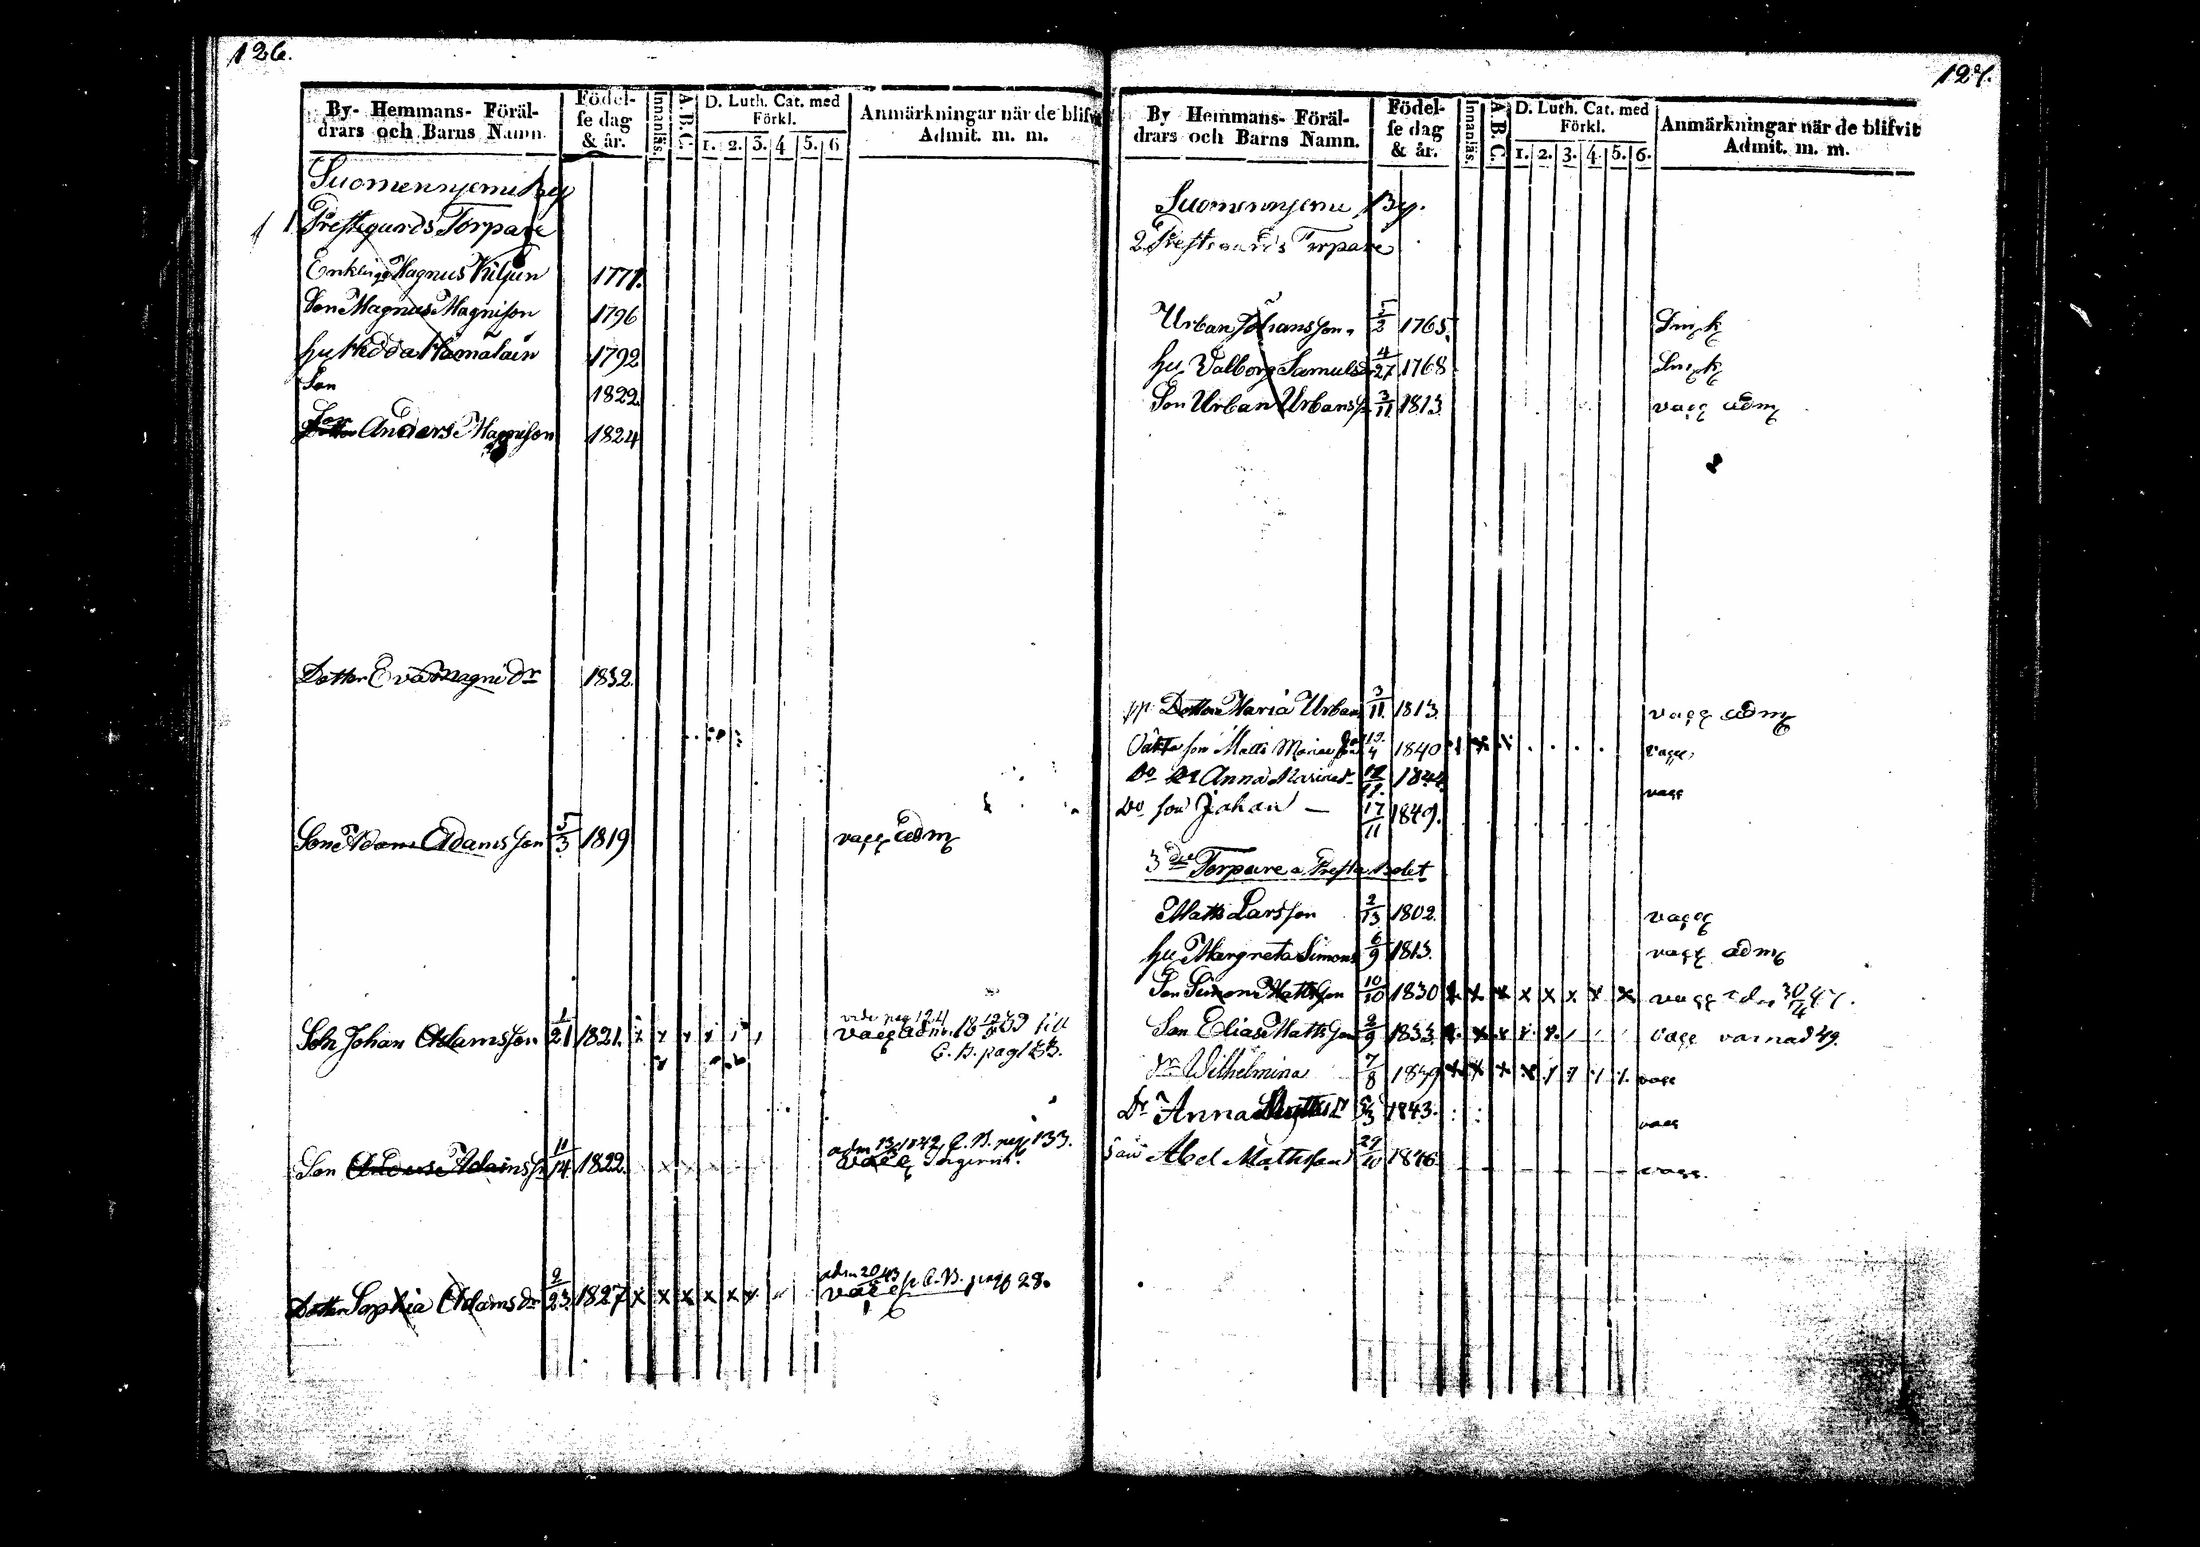 126.
By- Hemmans- Föräl-
drars och Barns Namn.
Födel-
se dag
& år.
Innanläs.
A. B. C.
D. Luth. Cat. med
Förkl.
1. 2. 3. 4 5. 6
Anmärkningar när de blifvit
Admit. m. m.
Suomenniemi By
1 Prestgårds Torpare
Enkling Magnus Kiljun 1771.
Son Magnus Magnison 1796
hu Hedda Hämäläin 1792
Son 1822.
Son Anders Magnison 1824
Dotter Eva Magni dr 1832.
Son Adam Adamsson 5/3 1819 vacc adm
Son Johan Adamsson 1/21 1821. vide pag 124
vacc adm 18 39 till
C. B. pag 133.
Son Adamss 11/14 1822. adm 1842 C. B. pag 133.
vacc
Dotter Sophia Adams dr 2/23 1827 x x x x x x adm 20/43
vacc C. B. pag 28.
127.
By Hemmans- Föräl-
drars och Barns Namn.
Födel-
se dag
& år.
Innanläs.
A. B. C.
D. Luth. Cat. med
Förkl.
1. 2. 3. 4. 5. 6.
Anmärkningar när de blifvit
Admit. m. m.
Suomenniemi By.
2 Prestgårds Torpare
Urban Johansson. 5/2 1765.
hu Valborg Samuelsdr 4/27 1768
Son Urban Urbanss 3/11 1813. vacc adm
Dotter Maria Urbans 3/11. 1813. vacc adm
Oäkta son Matts Mariae 19/4 1840 vacc.
Do Dr Anna Mariae dr 12/11. 1844. vacc
Do son Johan — 17/11 1849.
3die Torpare a Presta bolet
Matts Larsson 2/13 1802. vacc
hu Margreta Simons 6/9 1813. vacc adm
Son Simon Mattsson 10/10 1830 x x x x x x x x vacc adm 30/4 47.
Son Elias Mattsson 2/9 1833. x x x x x vacc varnad 49.
Dr Wilhelmina 7/8 1839 x x x x vacc
Dr Anna Matts Dr 5/3 1843. vacc
Son Abel Mattsson 29/10 1846 vacc.